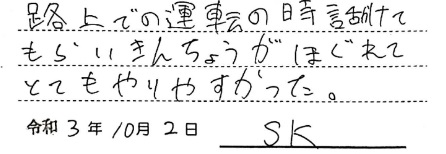 路上での運転の時話けて
もらいきんちょうがほぐれて
とてもやりやすかった。
令和 3 年 10月 2 日 SK